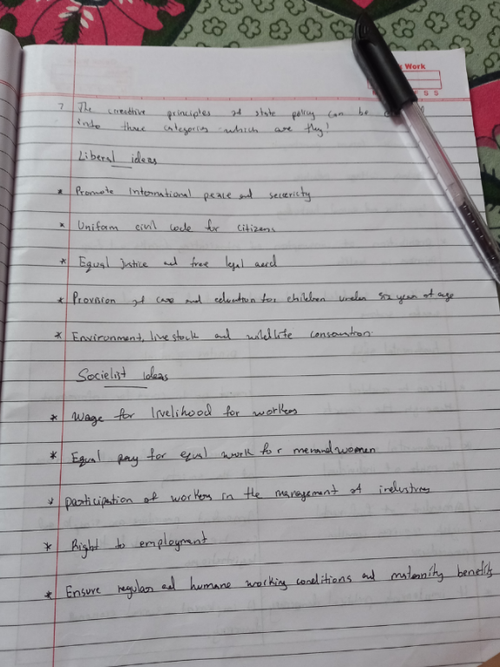 Work
7 The directive principles of state policy can be
into three categories which are they?
Liberal ideas
* Promote International peace and security
* Uniform civil code for citizens
* Equal justice and free legal
* Provision of care and education for children under six year of age
* Environment, livestock and wildlife conservation
Socielist ideas
* Wage for livelihood for workers
* Equal pay for equal work for men and women
* participation of workers in the management of industries
* Right to employment
* Ensure regular and humane working conditions and maternity benefits